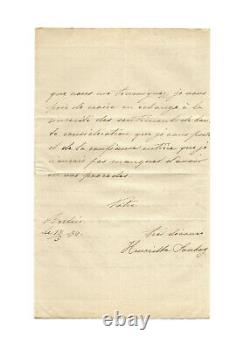 que vous me témoignez, je vous
prie de croire en échange à la
sincérité des sentiments de
la considération que je vous porte
et de la confiance entière que je
n'aurai pas manqué d'avoir
en vos procédés
Votre
le 13
très dévouée
Henriette